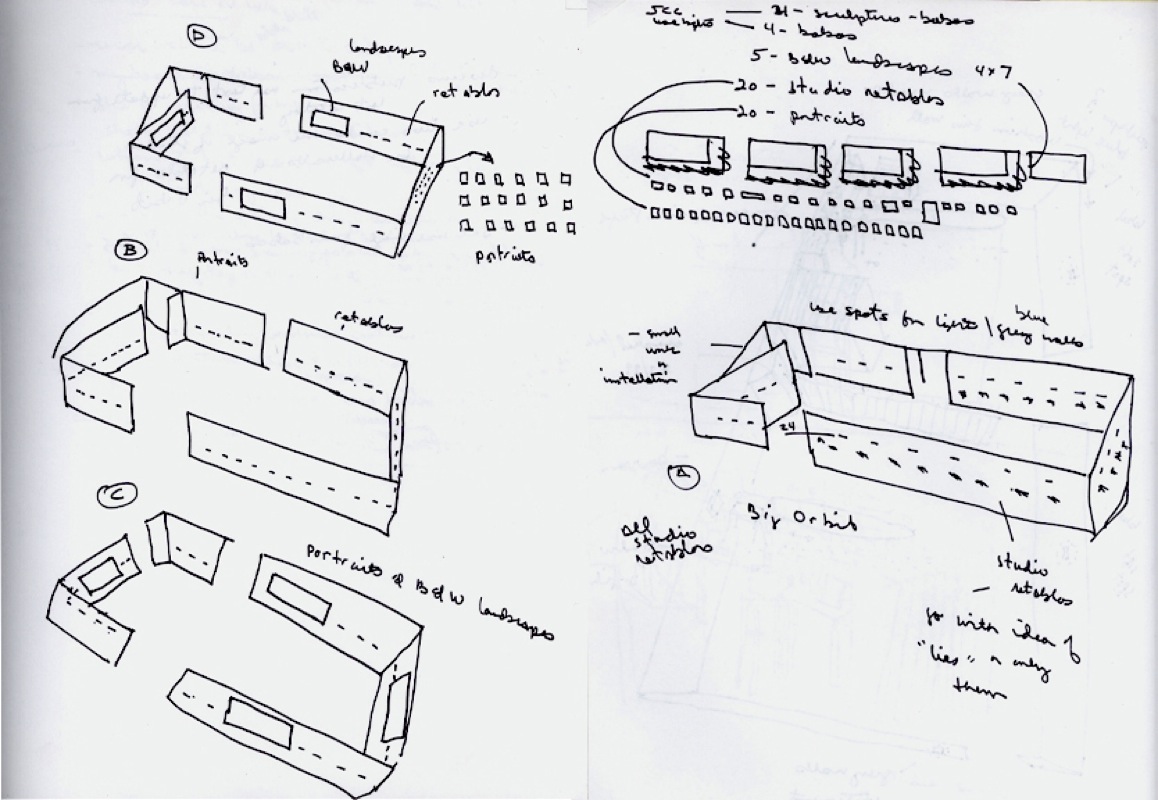 D
landscapes
B&W
retablos
portraits
B
Portraits
retablos
C
Portraits & B&W landscapes
sculptures - babas
4 - babas
5 - B&W landscapes 4x7
20 - studio retablos
20 - portraits
use spots for lights / blue grey walls
- small
work
installation
24
A
Big Orbit
all
studio
retablos
studio
- retablos
go with idea of
"lies" or only
them